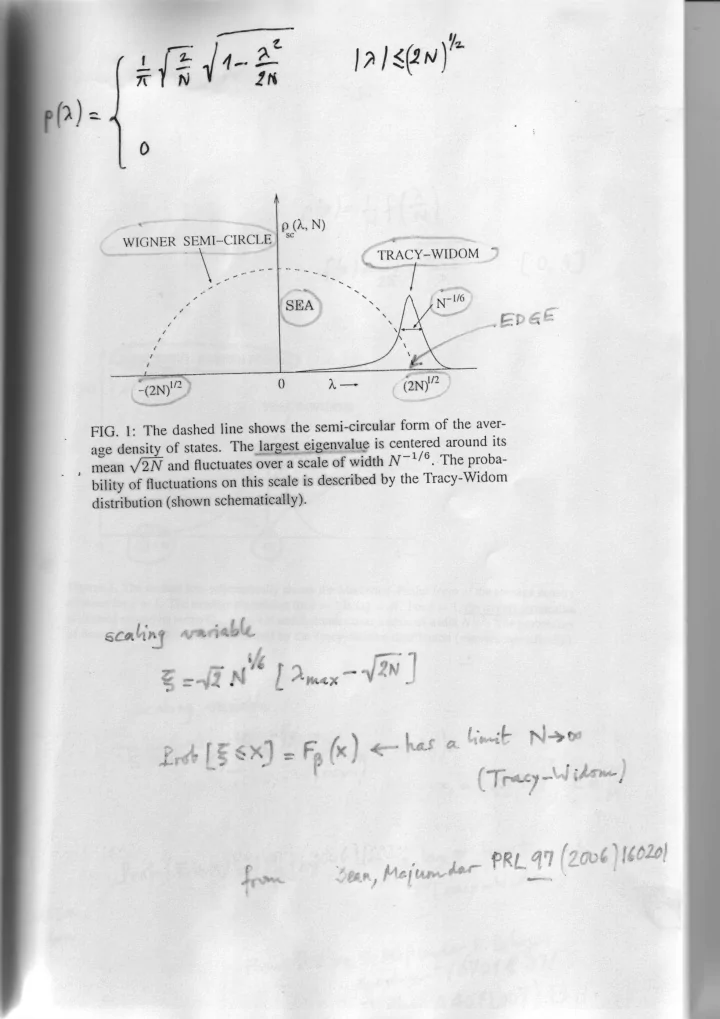 ρ(λ) = { 1/π √(2/N) √(1 - λ²/2N)   |λ| ≤ (2N)^1/2
0
ρ_sc (λ, N)
WIGNER SEMI–CIRCLE
TRACY–WIDOM
SEA
N^–1/6
EDGE
-(2N)^1/2   0   λ →   (2N)^1/2
FIG. 1: The dashed line shows the semi-circular form of the aver-
age density of states. The largest eigenvalue is centered around its
mean √2N and fluctuates over a scale of width N^−1/6. The proba-
bility of fluctuations on this scale is described by the Tracy-Widom
distribution (shown schematically).
scaling variable
ξ = √2 . N^1/6 [ λ_max - √2N ]
Prob [ξ ≤ x] = F_β (x) ← has a limit N→∞
(Tracy-Widom)
from Dean, Majumdar PRL 97 (2006) 160201